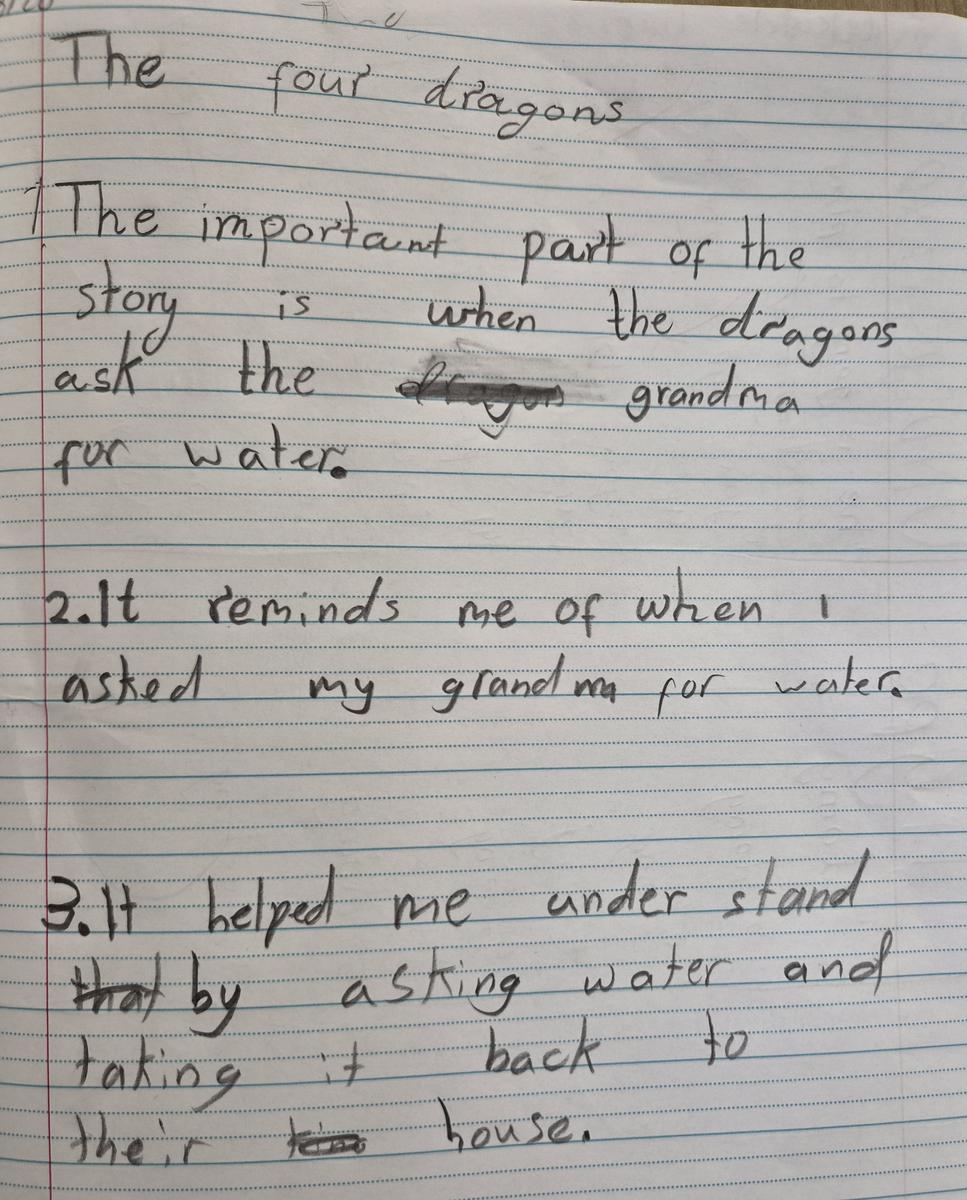 The four dragons
1 The important part of the
story is when the dragons
ask the grandma
for water.
2. It reminds me of when I
asked my grandma for water.
3. It helped me under stand
that by asking water and
taking it back to
their house.